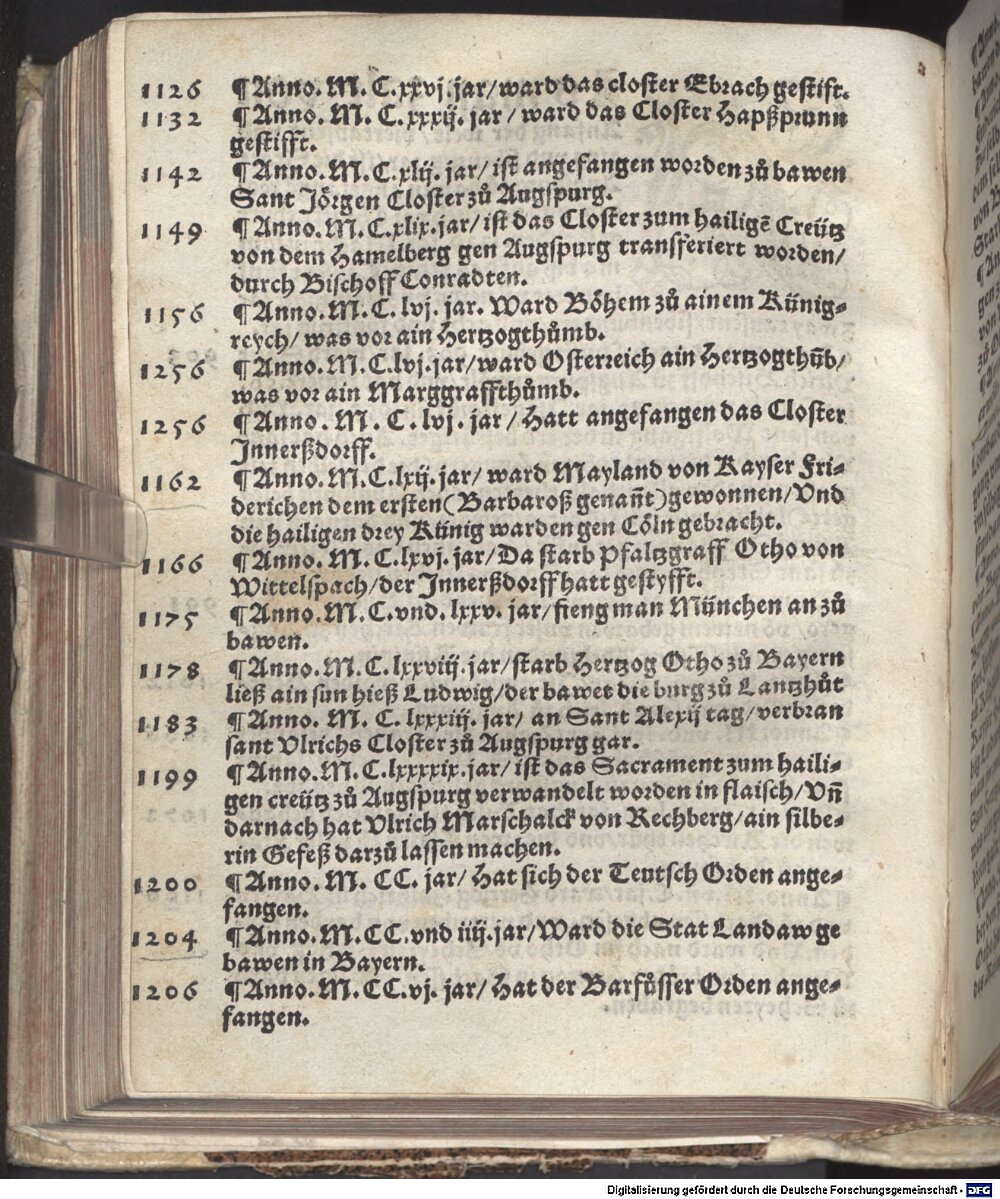 1126 ¶ Anno. M. C. xxvj. jar/ ward das closter Ebrach gestift.
1132 ¶ Anno. M. C. xxxij. jar / ward das Closter Hapßprunn
gestifft.
1142 ¶ Anno. M. C. xlij. jar/ ist angefangen worden zů bawen
Sant Jörgen Closter zů Augspurg.
1149 ¶ Anno. M. C. xlix. jar/ ist das Closter zum hailigẽ Creütz
von dem Hamelberg gen Augspurg transferiert worden/
durch Bischoff Conradten.
1156 ¶ Anno. M. C. lvj. jar. Ward Böhem zů ainem Künig⸗
reych/ was vor ain Hertzogthůmb.
1256 ¶ Anno. M. C. lvj. jar/ ward Osterreich ain Hertzogthům̃b/
was vor ain Marggraffthůmb.
1256 ¶ Anno. M. C. lvj. jar / Hatt angefangen das Closter
Innerßdorff.
1162 ¶ Anno. M. C. lxij. jar/ ward Mayland von Kayser Fri⸗
derichen dem ersten (Barbaroß genañt) gewonnen/ Vnd
die hailigen drey Künig warden gen Cöln gebracht.
1166 ¶ Anno. M. C. lxvj. jar/ Da starb Pfaltzgraff Otho von
Wittelspach/ der Innerßdorff hatt gestyfft.
1175 ¶ Anno. M. C. vnd. lxxv. jar/ fieng man München an zů
bawen.
1178 ¶ Anno. M. C. lxxviij. jar/ starb Hertzog Otho zů Bayern
ließ ain sun hieß Ludwig/ der bawet die burg zů Lantzhůt
1183 ¶ Anno. M. C. lxxxiij. jar/ an Sant Alexij tag/ verbran
sant Vlrichs Closter zů Augspurg gar.
1199 ¶ Anno. M. C. lxxxxix. jar/ ist das Sacrament zum haili⸗
gen creütz zů Augspurg verwandelt worden in flaisch/ Vñ
darnach hat Vlrich Marschalck von Rechberg/ ain silbe⸗
rin Gefeß darzů lassen machen.
1200 ¶ Anno. M. CC. jar/ Hat sich der Teutsch Orden ange⸗
fangen.
1204 ¶ Anno. M. CC. vnd iiij. jar/ Ward die Stat Landaw ge
bawen in Bayern.
1206 ¶ Anno. M. CC. vj. jar/ Hat der Barfůsser Orden ange⸗
fangen.
Digitalisierung gefördert durch die Deutsche Forschungsgemeinschaft - DFG